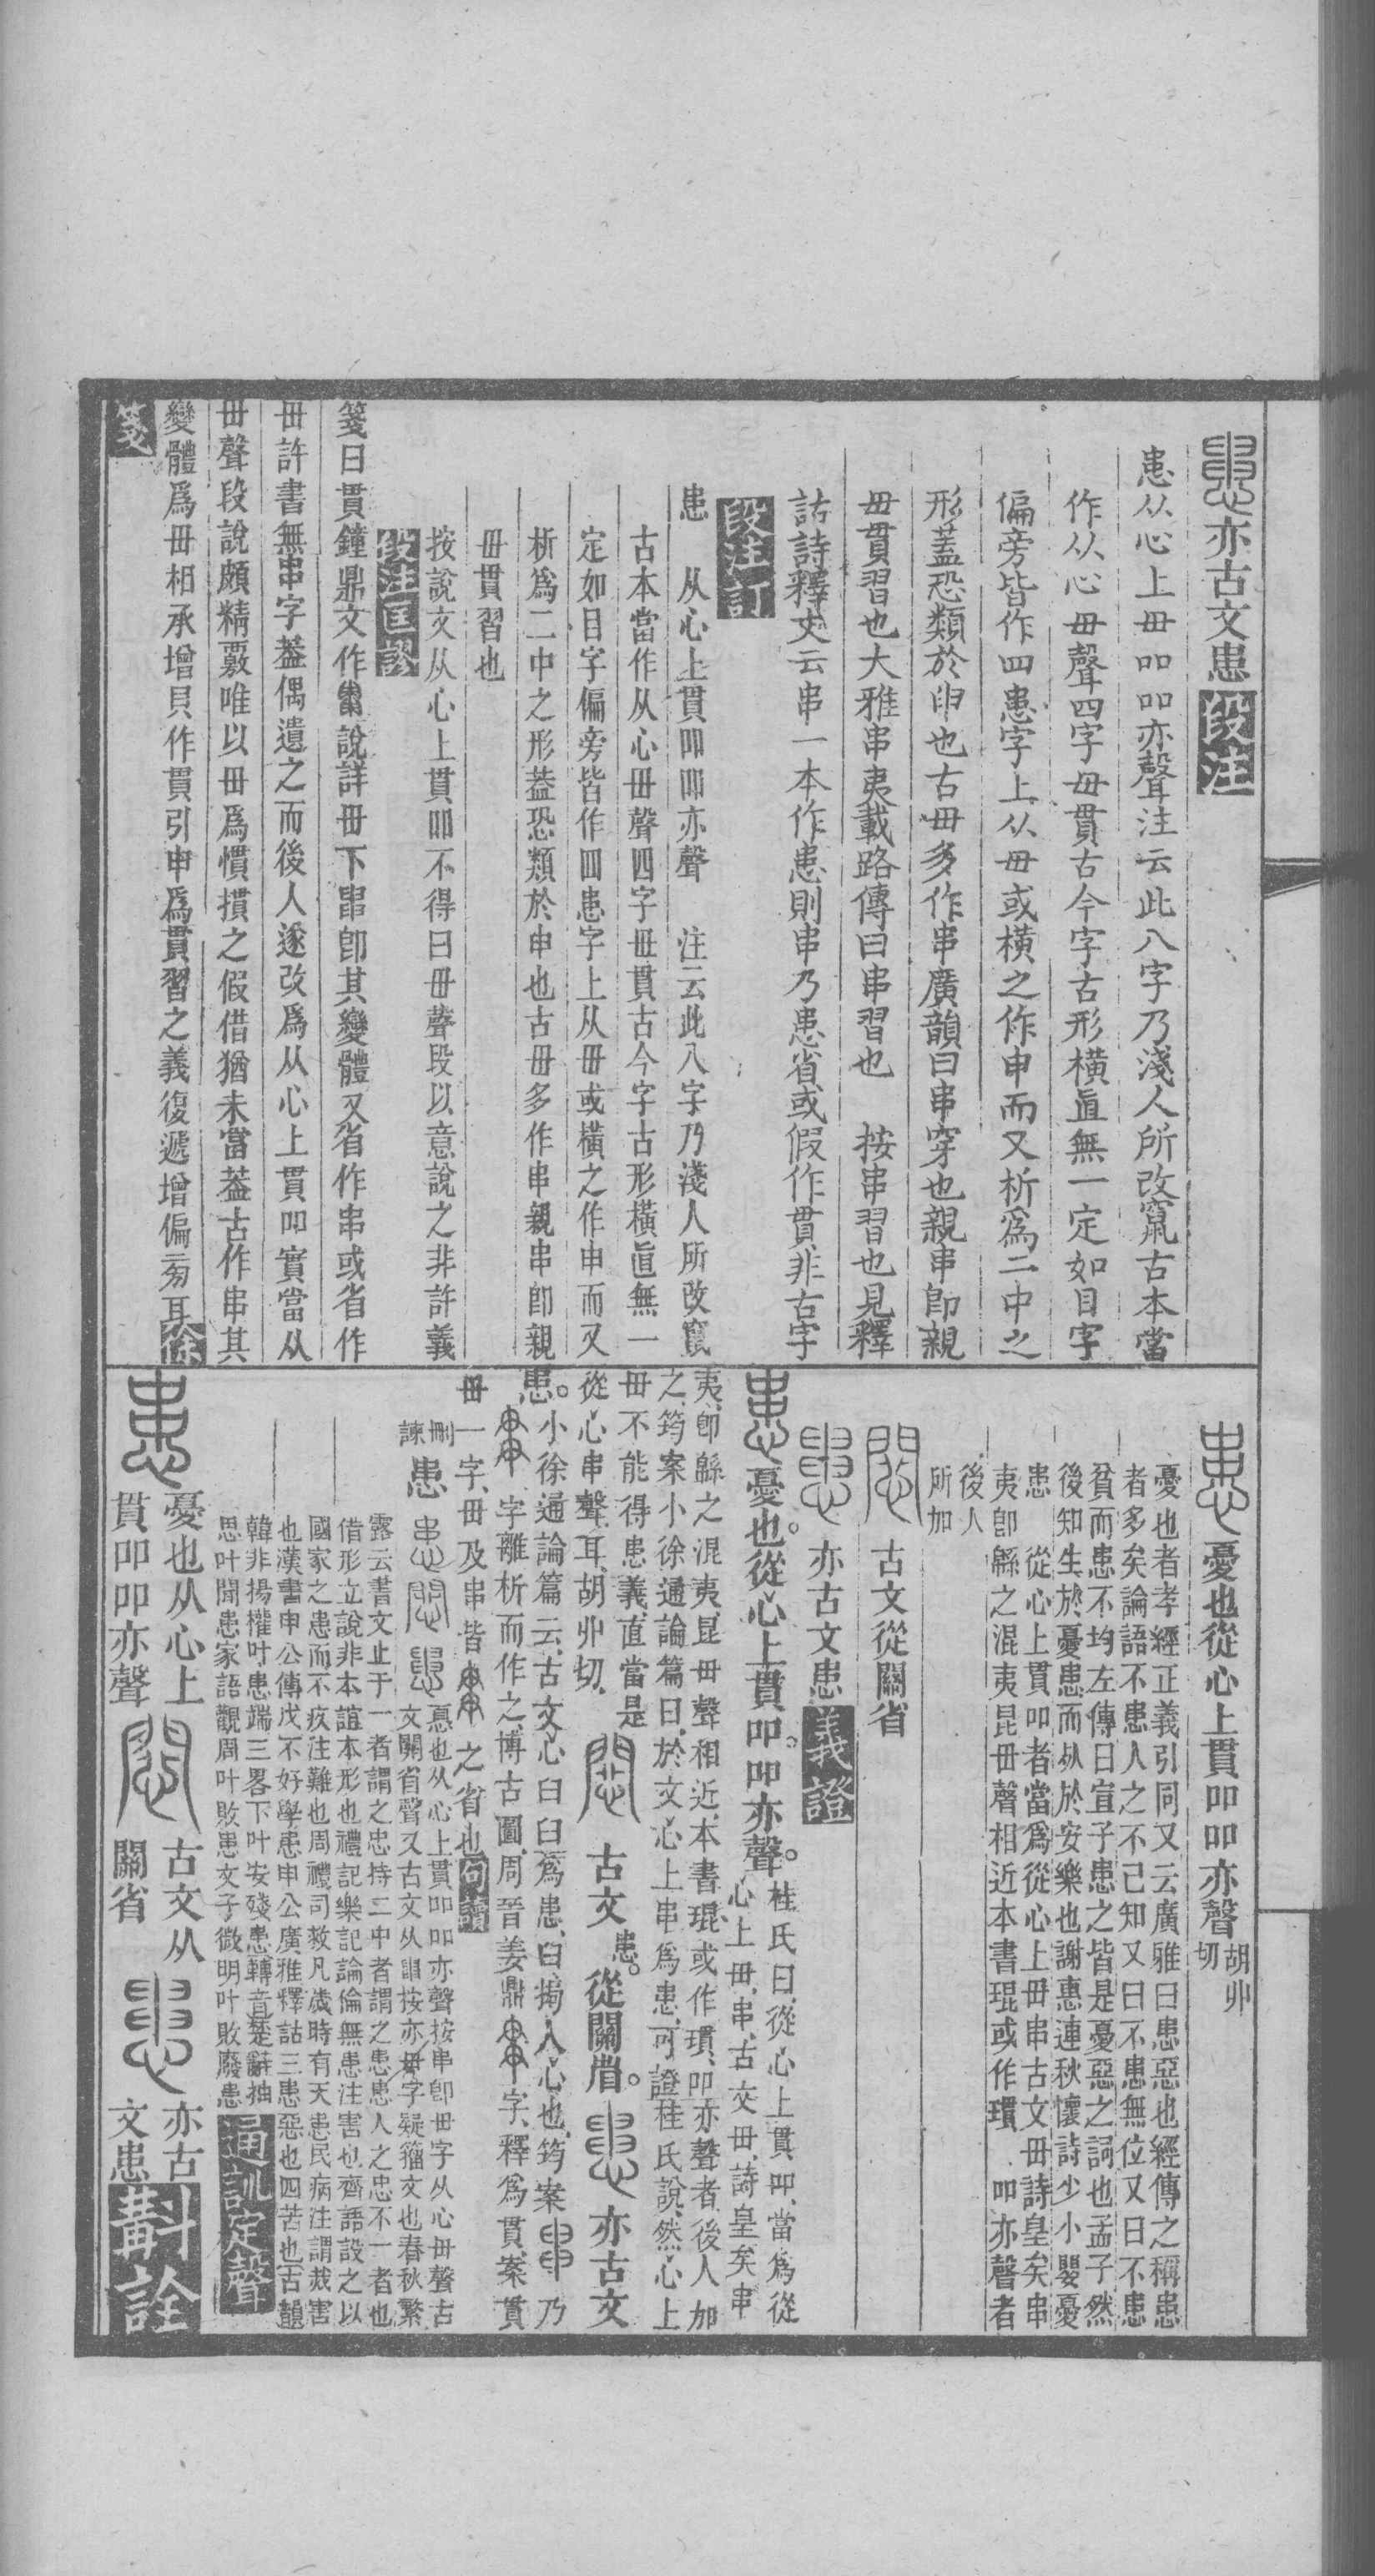 亦古文患段注
患从心上毌吅吅亦聲注云此八字乃淺人所改竄古本當
作从心毌聲四字毌貫古今字古形橫直無一定如目字
偏旁皆作罒患字上从毌或橫之作申而又析爲二中之
形蓋恐類於申也古毌多作串廣韻曰串穿也親串卽親
毌貫習也大雅串夷載路傳曰串習也　按串習也見釋
詁詩釋文云串一本作患則串乃患省或假作貫非古字
段注訂
患　从心上貫吅吅亦聲　注云此八字乃淺人所改竄
古本當作从心毌聲四字毌貫古今字古形橫直無一
定如目字偏旁皆作罒患字上从毌或橫之作申而又
析爲二中之形葢恐類於申也古毌多作串親串卽親
毌貫習也
按說文从心上貫吅不得曰毌聲段以意說之非許義
段注匡謬
箋曰貫鐘鼎文作說詳毌下串卽其變體又省作串或省作
毌許書無串字葢偶遺之而後人遂改爲从心上貫吅實當从
毌聲段說頗精覈唯以毌爲慣摜之假借猶未當葢古作串其
變體爲毌相承增貝作貫引申爲貫習之義復遞增偏旁耳徐
箋
憂也從心上貫吅吅亦聲胡丱切
憂也者孝經正義引同又云廣雅曰患惡也經傳之稱患
者多矣論語不患人之不己知又曰不患無位又曰不患
貧而患不均左傳曰宣子患之皆是憂惡之詞也孟子然
後知生於憂患而死於安樂也謝惠連秋懷詩少小嬰憂
患　從心上貫吅者當爲從心上毌串古文毌詩皇矣串
夷卽緜之混夷昆毌聲相近本書琨或作瑻　吅亦聲者
後人
所加
古文從關省
亦古文患義證
憂也。從心上貫吅。吅亦聲。桂氏曰、從心上貫吅、當爲從
心上毌、串、古文毌、詩皇矣串
夷、卽緜之混夷、昆毌聲相近、本書琨或作瑻、吅亦聲者、後人加
之、筠案小徐通論篇曰、於文心上串爲患、可證桂氏說、然心上
毌不能得患義、直當是
從心串聲耳、胡丱切、
古文患。從關省。亦古文
患。小徐通論篇云、古文心臼臼爲患、臼、掬人心也、筠案乃
字離析而作之、博古圖、周晉姜鼎字、釋爲貫、案貫
毌一字、毌及串皆之省也句讀
刪諫
患
惪也从心上貫吅吅亦聲按串卽毌字从心毌聲古
文關省聲又古文从按亦毌字疑籀文也春秋繁
露云書文止于一者謂之忠持二中者謂之患患人之忠不一者也
借形立說非本誼本形也禮記樂記論倫無患注害也齊語設之以
國家之患而不疚注難也周禮司救凡歲時有天患民病注謂烖害
也漢書申公傳戊不好學患申公廣雅釋詁三患惡也四苦也古韻
韓非揚權叶患端三畧下叶安殘患轉音楚辭抽
思叶聞患家語觀周叶敗患文子微明叶敗廢患通訓定聲
憂也从心上
貫吅吅亦聲
古文从
關省
亦古
文患
斠詮